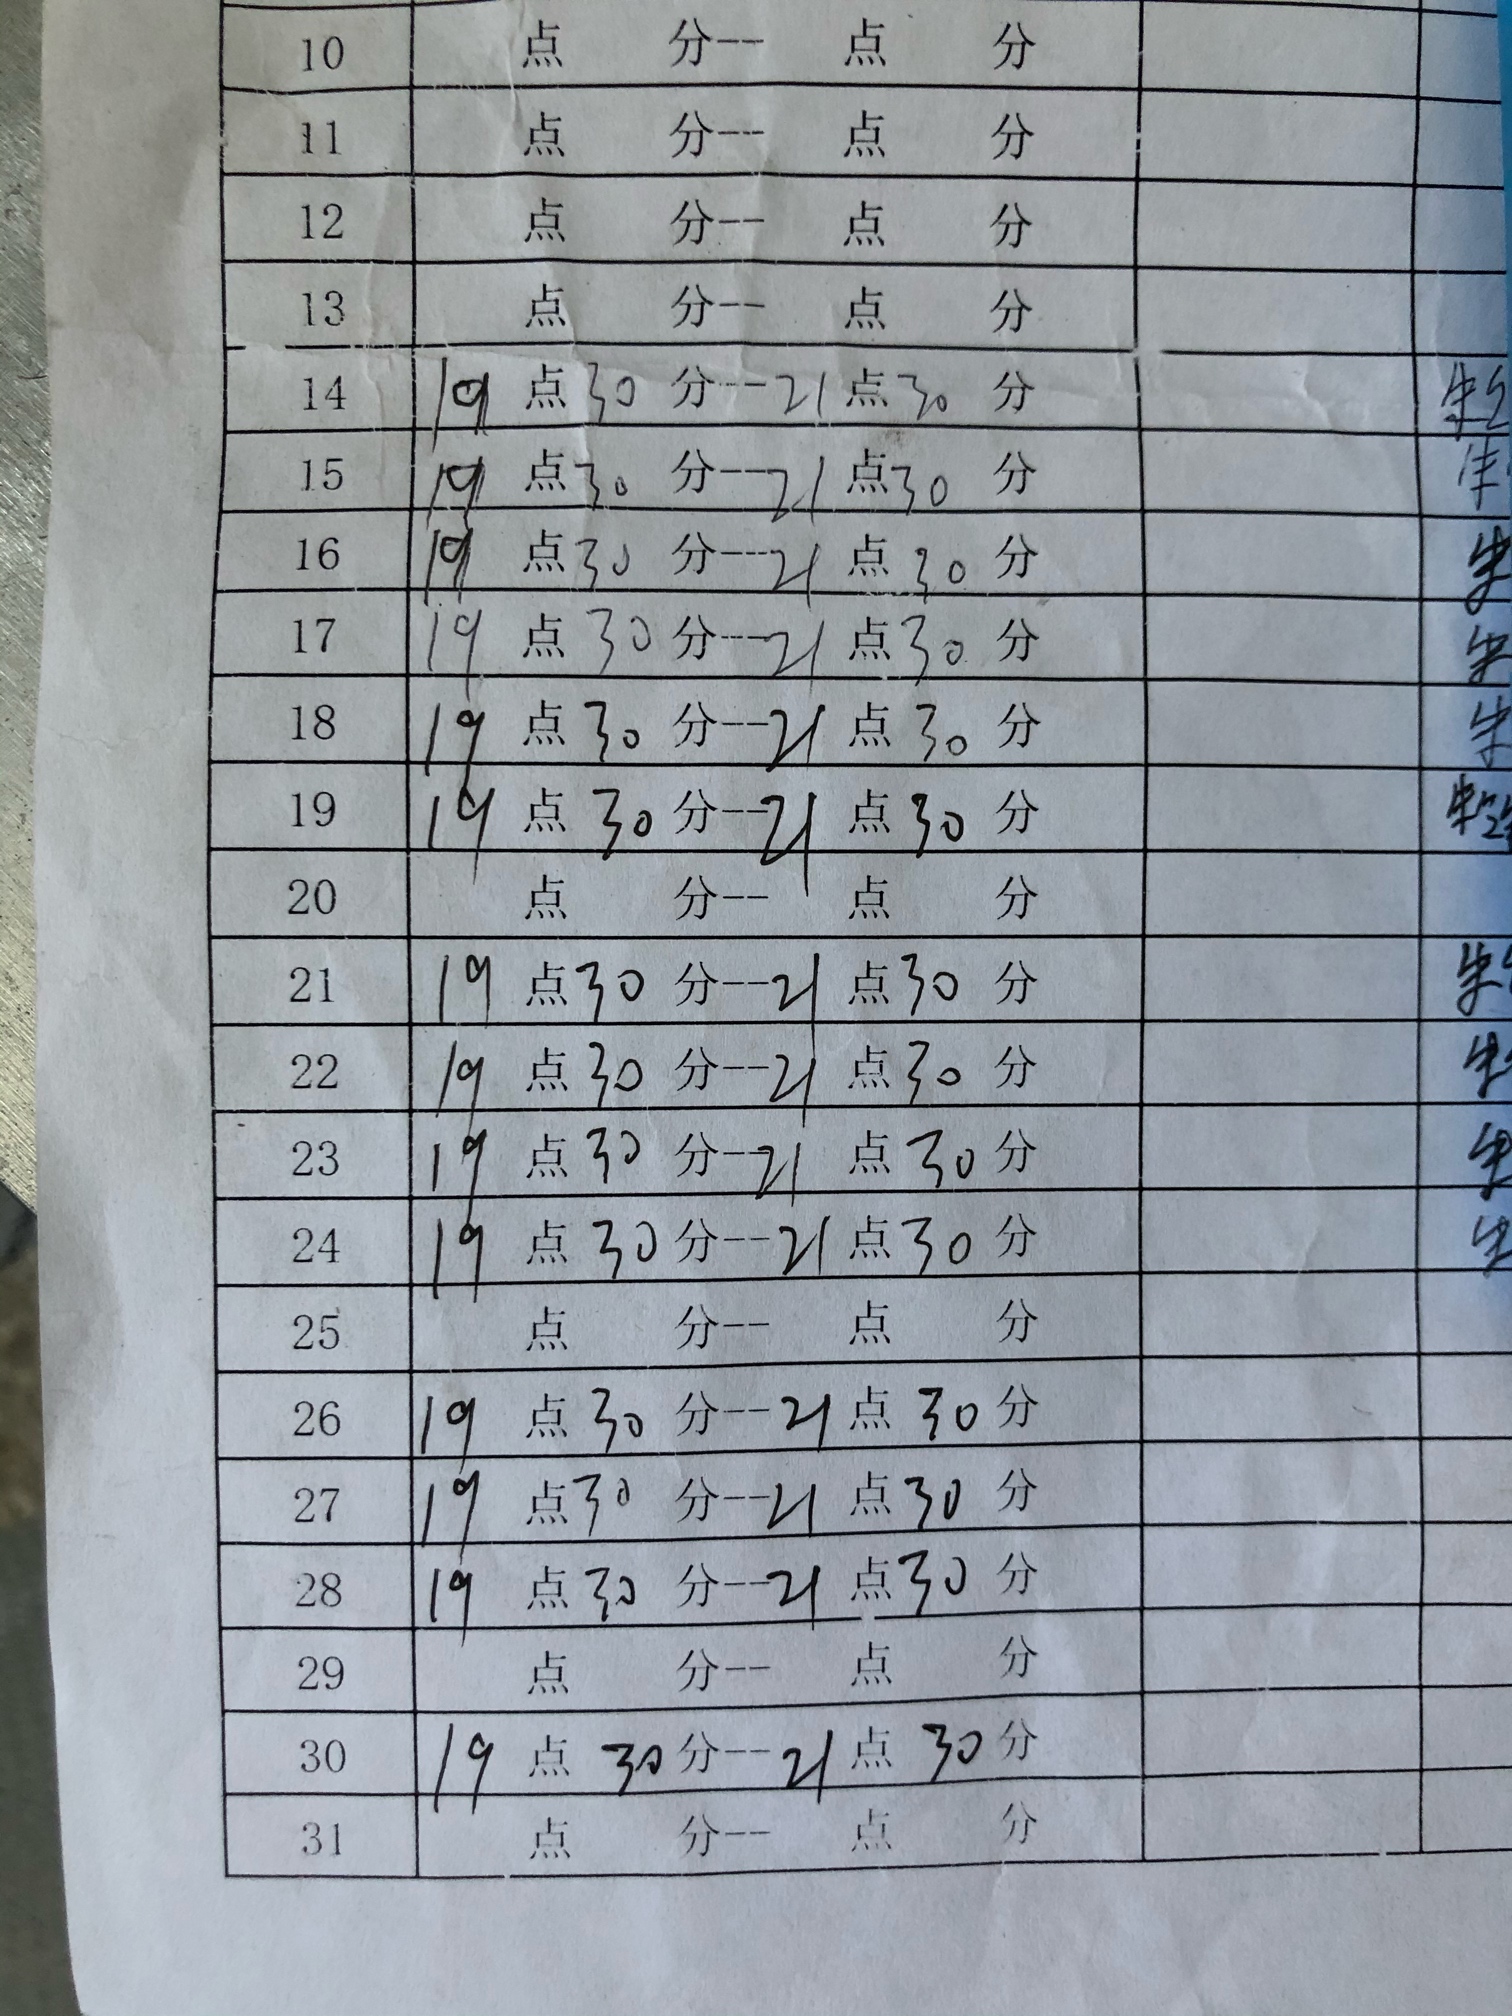 10 点 分-- 点 分
11 点 分-- 点 分
12 点 分-- 点 分
13 点 分-- 点 分
14 19 点 30 分--21 点 30 分
15 19 点 30 分--21 点 30 分
16 19 点 30 分--21 点 30 分
17 19 点 30 分--21 点 30 分
18 19 点 30 分--21 点 30 分
19 19 点 30 分--21 点 30 分
20 点 分-- 点 分
21 19 点 30 分--21 点 30 分
22 19 点 30 分--21 点 30 分
23 19 点 30 分--21 点 30 分
24 19 点 30 分--21 点 30 分
25 点 分-- 点 分
26 19 点 30 分--21 点 30 分
27 19 点 30 分--21 点 30 分
28 19 点 30 分--21 点 30 分
29 点 分-- 点 分
30 19 点 30 分--21 点 30 分
31 点 分-- 点 分